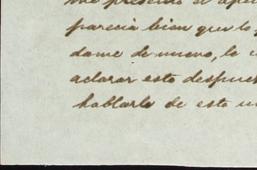 me presenta el ape
parecia bien que lo
dame de nuevo, lo
aclarar esto despues
hablarle de este